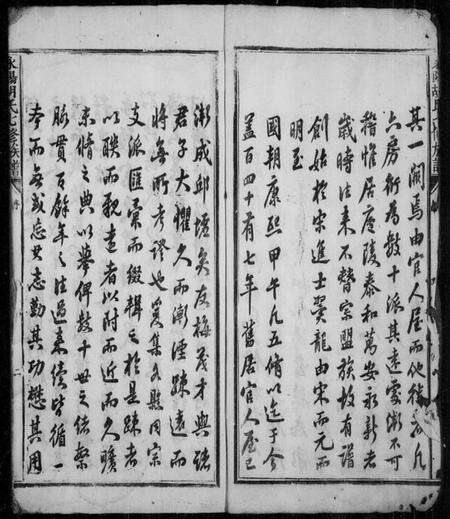 其一關焉由官人屋而他徙者凡
六房衍為數十派其遠處漸不可
稽惟居廬陵泰和萬安永新者
歲時往來不替宗盟族故有譜
創始於宋進士翼龍由宋而元而
明至
國朝康熙甲午凡五脩以迄于今
蓋百四十有七年舊居官人屋已
漸成邱墟矣友梅茂才與諸
君子大懼久而漸湮疎遠而
將無所考證也爰集各縣同宗
支派匯彙而綴輯之於是疎者
以聯而親遠者以附而近而久曠
未脩之典以舉俾數十世之統系
脉貫百餘年之往過來續皆循一
本而無或忘其志勤其功懋其用
永陽胡氏七修族譜
序
二